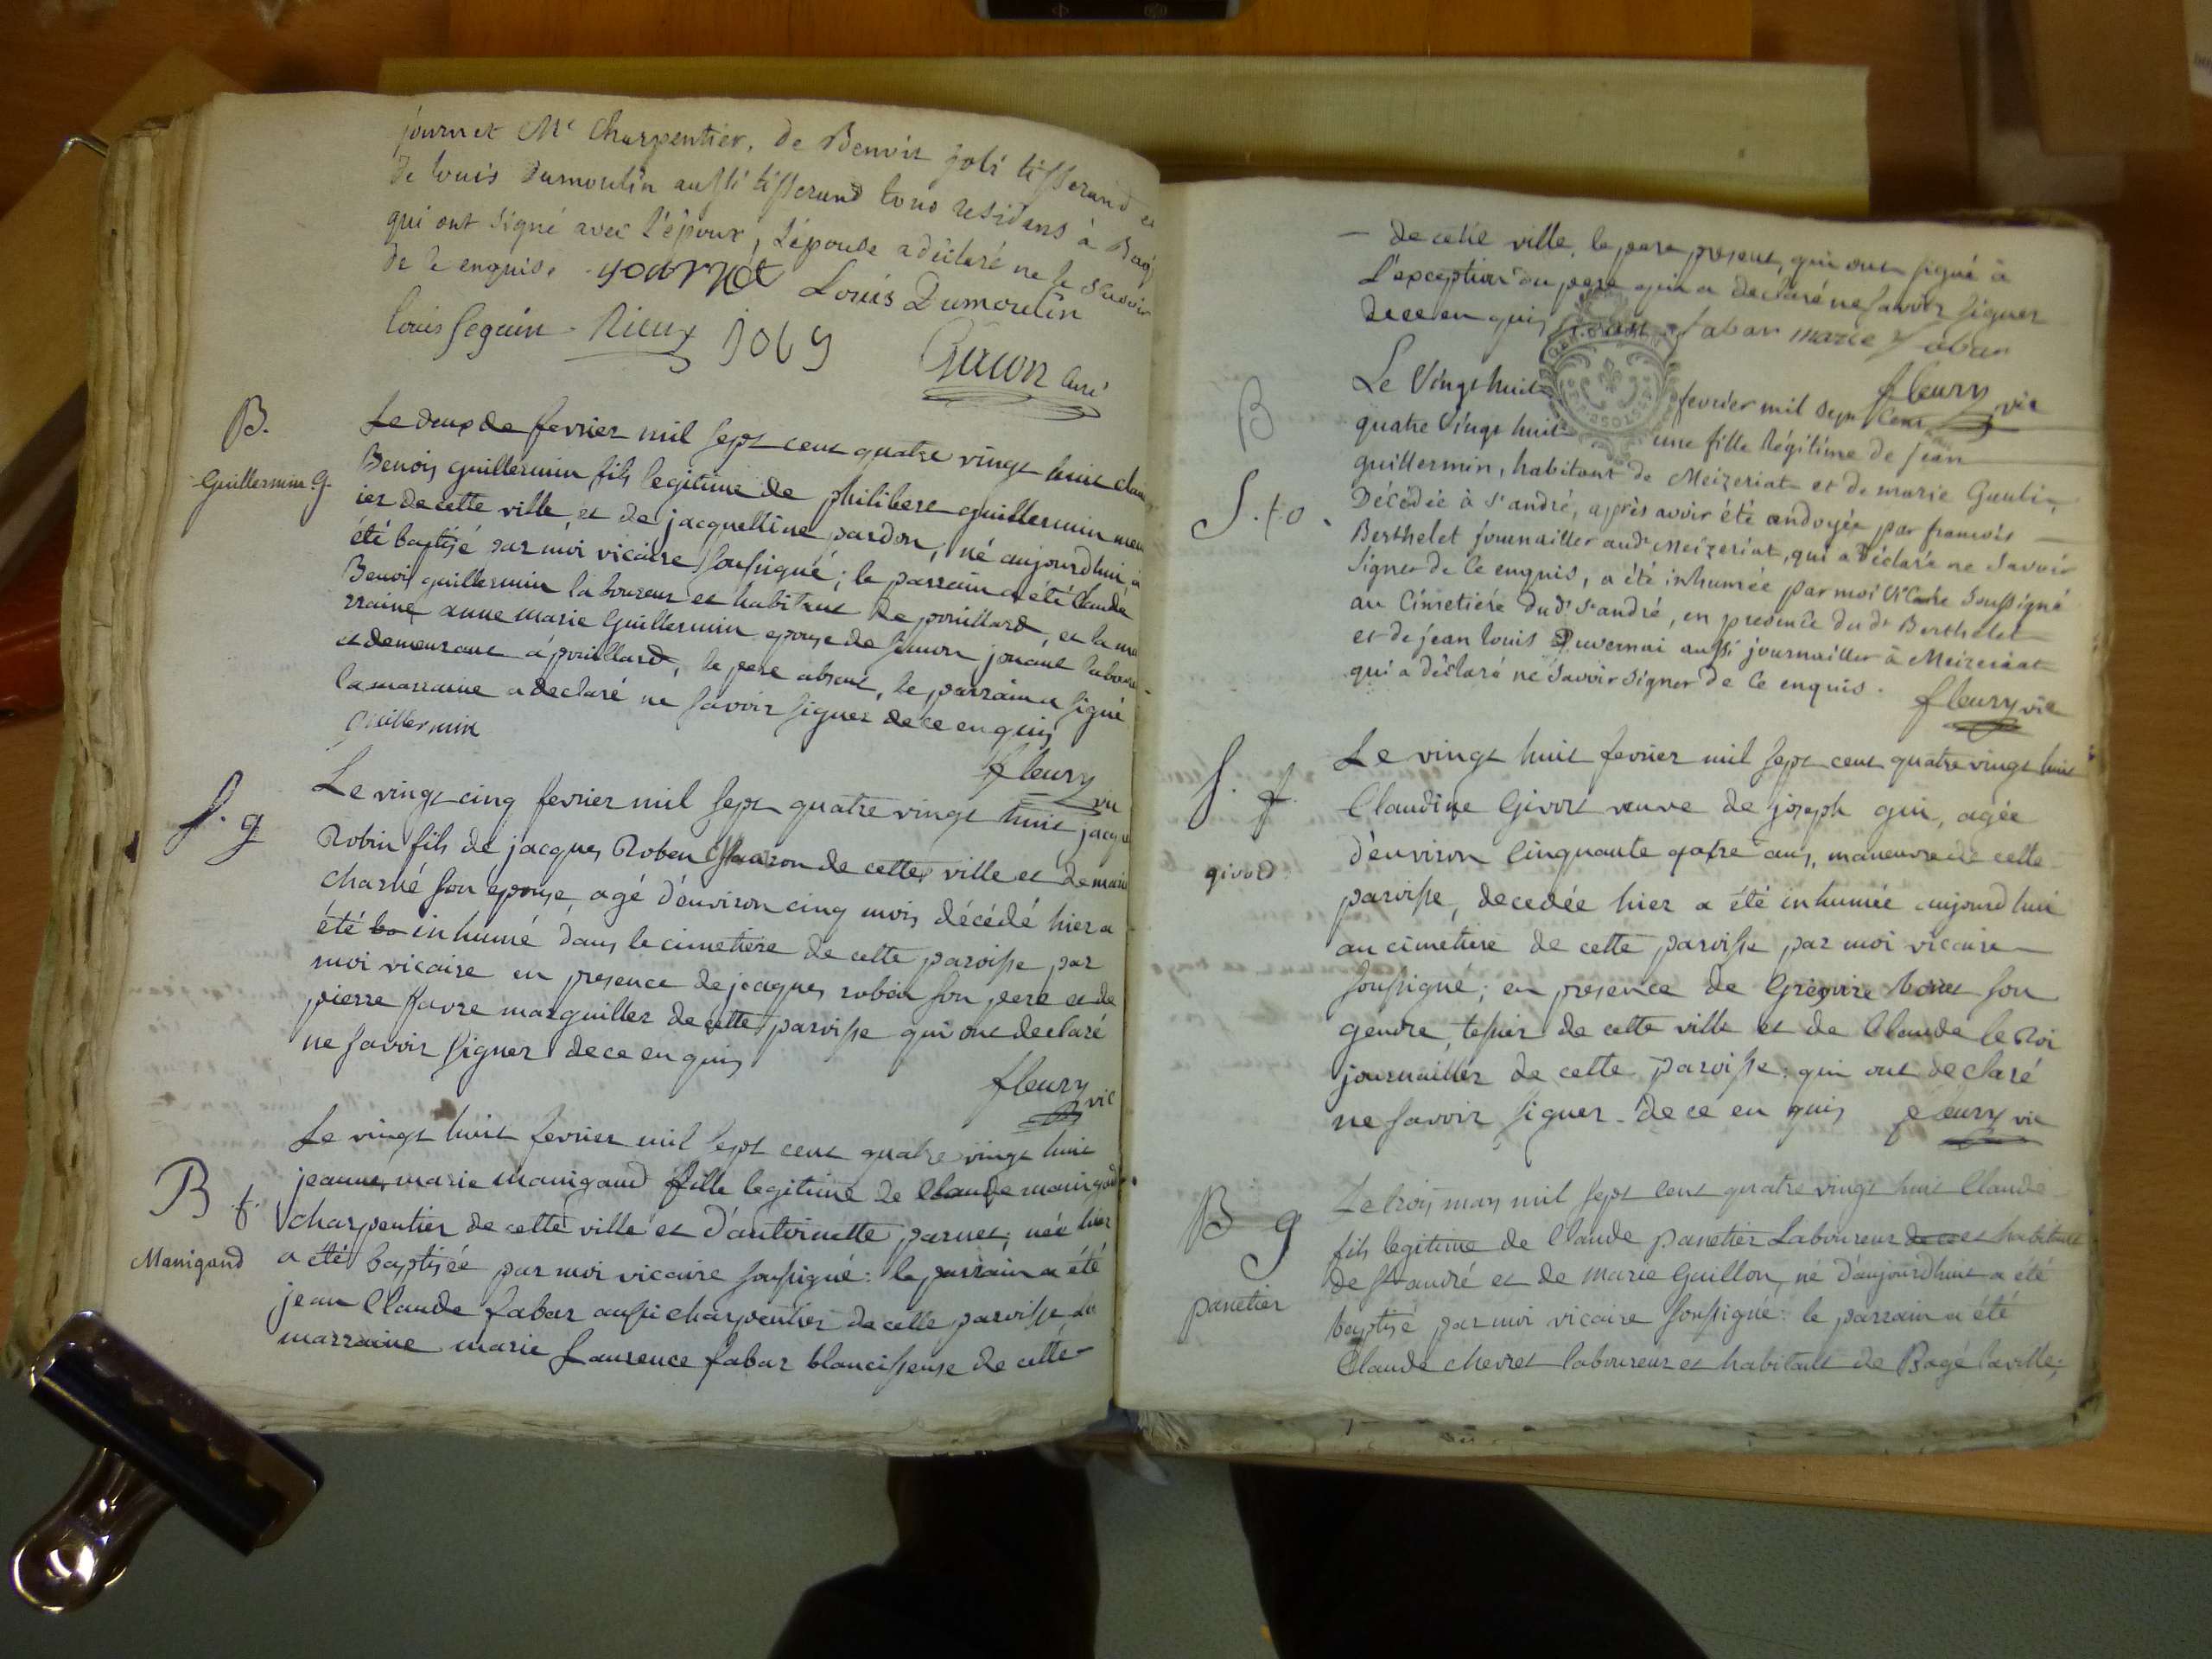 journet Me Charpentier, de Benoit joli tisserand et
de louis dumoulin aussi tisserand tous residans à Bagé
qui ont signé avec l'époux, l'épouse a déclaré ne le savoir
de ce enquise journet Louis Dumoulin
louis seguin Rieux joly
curé
B.
Guillermin g.
Le deux de fevrier mil sept cent quatre vingt huit claude
Benoit guillermin fils legitime de philibert guillermin menu
ier de cette ville, et de jacquettine pardon, né aujourdhui a
été baptisé par moi vicaire soussigné; le parrain a été claude
Benoit guillermin laboureur et habitant de pouillard, et la ma
rraine anne marie Guillermin epouse de simon jouant laboureur
et demeurant à pouillard, le pere absent, le parrain a signé
la marraine a declaré ne savoir signer de ce enquis
guillermin
fleury vic
S. g
Le vingt cinq fevrier mil sept quatre vingt huit jacque
Robin fils de jacques Robin de cette ville et de marie
charvé son epouse, agé d'environ cinq mois décédé hier a
été ba inhumé dans le cimetiere de cette paroisse par
moi vicaire en presence de jacques robin son pere et de
pierre favre marguillier de cette paroisse qui ont declaré
ne savoir signer de ce enquis
fleury vic
B f.
Manigand
Le vingt huit fevrier mil sept cent quatre vingt huit
jeanne marie manigand fille legitime de Claude manigand
charpentier de cette ville et d'antoinette parnet, née hier
a été baptisée par moi vicaire soussigné: le parrain a été
jean Claude fabar aussi charpentier de cette paroisse la
marraine marie Laurence fabar blanchisseuse de cette
de cette ville, le pere present, qui ont signé à
L'exception du pere qui a declaré ne savoir signer
de ce enquis jean fabar marie fabar
fleury vic
B
S. f. o.
Le Vingt huit fevrier mil sept Cent
quatre Vingt huit une fille légitime de jean
guillermin, habitant de Meizeriat et de marie
Décédée à St andré, après avoir été ondoyée par francois
Berthelet journailler aud. Meizeriat, qui a déclaré ne Savoir
Signer de ce enquis, a été inhumée par moi Vicaire soussigné
au Cimetiere du dt St andré, en presence du dt Berthelet
et de jean louis Duvernai aussi journailler à Meizeriat
qui a déclaré ne Savoir signer de ce enquis.
fleury vic
S. f.
givord
Le vingt huit fevrier mil sept cent quatre vingt huit
Claudine Givord veuve de joseph gui, agée
d'environ Cinquante quatre ans, maneuvre de cette
paroisse, decedée hier a été inhumée aujourdhui
au cimetiere de cette paroisse par moi vicaire
soussigné; en presence de Gregoire son
gendre, tesier de cette ville et de Claude le Roi
journailler de cette paroisse: qui ont declaré
ne savoir signer de ce enquis fleury vic
B g
panetier
Le trois mars mil sept cent quatre vingt huit Claude
fils legitime de Claude panetier Laboureur de ce et habitant
de St andré et de Marie Guillon, né d'aujourdhui a été
baptisé par moi vicaire soussigné: le parrain a été
Claude chevret laboureur et habitant de Bagé laville;